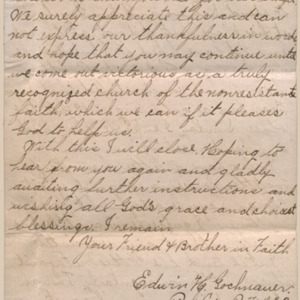 We surely appreciate this and can
not express our thankfulness in words
and hope that you may continue until
we come out victorious as a truly
recognized church of the nonresistant
faith, which we can if it pleases
God to help us.
With this I will close. Hoping to
hear from you again and gladly
awaiting further instructions and
wishing all God's grace and choicest
blessings. I remain
Your Friend & Brother in Faith
Edwin H. Gochnauer.